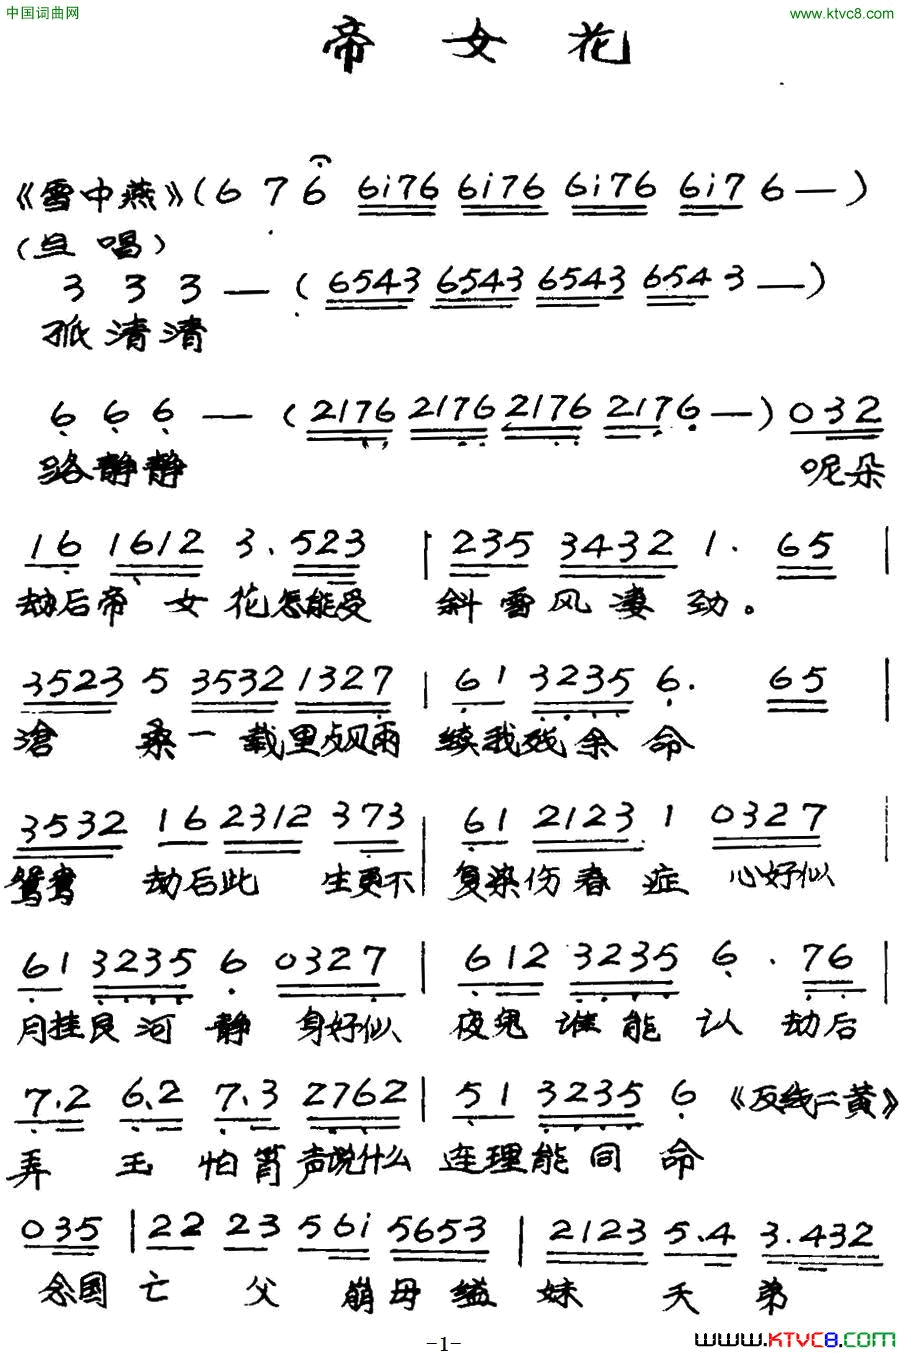 中国词曲网
www.ktvc8.com
帝女花
《雪中燕》(6 7 6 6i76 6i76 6i76 6i7 6 —)
(旦唱)
3 3 3 — (6543 6543 6543 654 3 —)
孤清清
6 6 6 — (2176 2176 2176 217 6 —) 032
路静静 呢朵
16 1612 3. 523 | 235 3432 1. 65 |
劫后帝女花怎能受 斜雪风凄劲。
3523 5 3532 1327 | 61 3235 6. 65 |
沧桑一载里点风雨 续我残余命
3532 16 2312 373 | 61 2123 1 0327 |
鸳鸯劫后此生更不 复染伤春症 心好似
61 3235 6 0327 | 612 3235 6. 76 |
月挂艮河静 身好似 夜鬼谁能认 劫后
7.2 6.2 7.3 2762 | 51 3235 6 《反线二黄》
弄玉怕箫声说什么 连理能同命
035 | 22 23 56i 5653 | 2123 5.4 3.432
念国亡父崩母缢妹夭弟
-1-
www.KTVC8.com